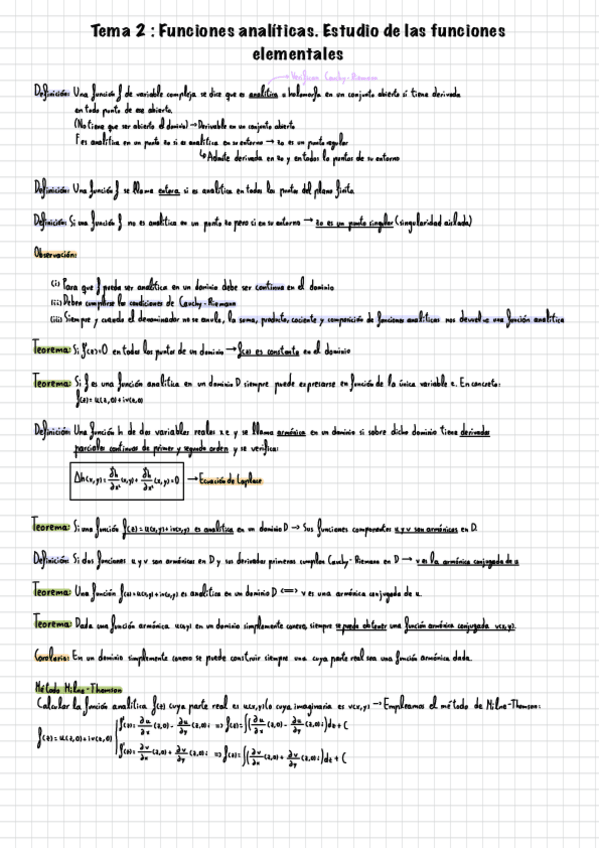 Tema 2 : Funciones analíticas. Estudio de las funciones
elementales
Verifican Cauchy-Riemann
Definición: Una función f de variable compleja se dice que es analítica u holomorfa en un conjunto abierto si tiene derivada
en todo punto de ese abierto.
(No tiene que ser abierto el dominio) → Derivable en un conjunto abierto
F es analítica en un punto z0 si es analítica en su entorno → z0 es un punto regular
↳ Admite derivada en z0 y en todos los puntos de su entorno
Definición: Una función f se llama entera, si es analítica en todos los puntos del plano finito
Definición: Si una función f no es analítica en un punto z0 pero si en su entorno → z0 es un punto singular (singularidad aislada)
Observación:
(i) Para que f pueda ser analítica en un dominio debe ser continua en el dominio
(ii) Deben cumplirse las condiciones de Cauchy-Riemann
(iii) Siempre y cuando el denominador no se anule, la suma, producto, cociente y composición de funciones analíticas nos devuelve una función analítica
Teorema: Si f'(z)=0 en todos los puntos de un dominio → f(z) es constante en el dominio
Teorema: Si f es una función analítica en un dominio D siempre puede expresarse en función de la única variable z. En concreto:
f(z)= u(z,0)+iv(z,0)
Definición: Una función h de dos variables reales x e y se llama armónica en un dominio si sobre dicho dominio tiene derivadas
parciales continuas de primer y segundo orden y se verifica:
Δh(x,y)= ∂²h/∂x² (x,y)+ ∂²h/∂y² (x,y)=0 → Ecuación de Laplace
Teorema: Si una función f(z)=u(x,y)+iv(x,y) es analítica en un dominio D → Sus funciones componentes u y v son armónicas en D.
Definición: Si dos funciones u y v son armónicas en D y sus derivadas primeras cumplen Cauchy-Riemann en D → v es la armónica conjugada de u
Teorema: Una función f(z)=u(x,y)+iv(x,y) es analítica en un dominio D <=> v es una armónica conjugada de u.
Teorema: Dada una función armónica u(x,y) en un dominio simplemente conexo, siempre se puede obtener una función armónica conjugada v(x,y).
Corolario: En un dominio simplemente conexo se puede construir siempre una cuya parte real sea una función armónica dada.
Método Milne-Thomson
Calcular la función analítica f(z) cuya parte real es u(x,y) (o cuya imaginaria es v(x,y) → Empleamos el método de Milne-Thomson:
f(z)= u(z,0)+iv(z,0)
f'(z)= ∂u/∂x (z,0) - ∂u/∂y (z,0)i => f(z)=∫(∂u/∂x (z,0) - ∂u/∂y (z,0)i)dz + C
f'(z)= ∂v/∂x (z,0) + ∂v/∂y (z,0)i => f(z)=∫(∂v/∂x (z,0) + ∂v/∂y (z,0)i)dz + C